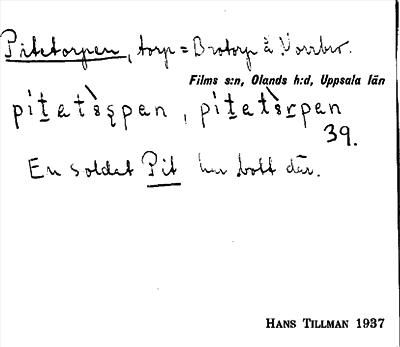 Pitetorpen, torp = Brotorp å Vorrbo.
Films s:n, Olands h:d, Uppsala län
pitetàşpen, pitetàrpen
39.
En soldat Pit har bott där.
HANS TILLMAN 1937